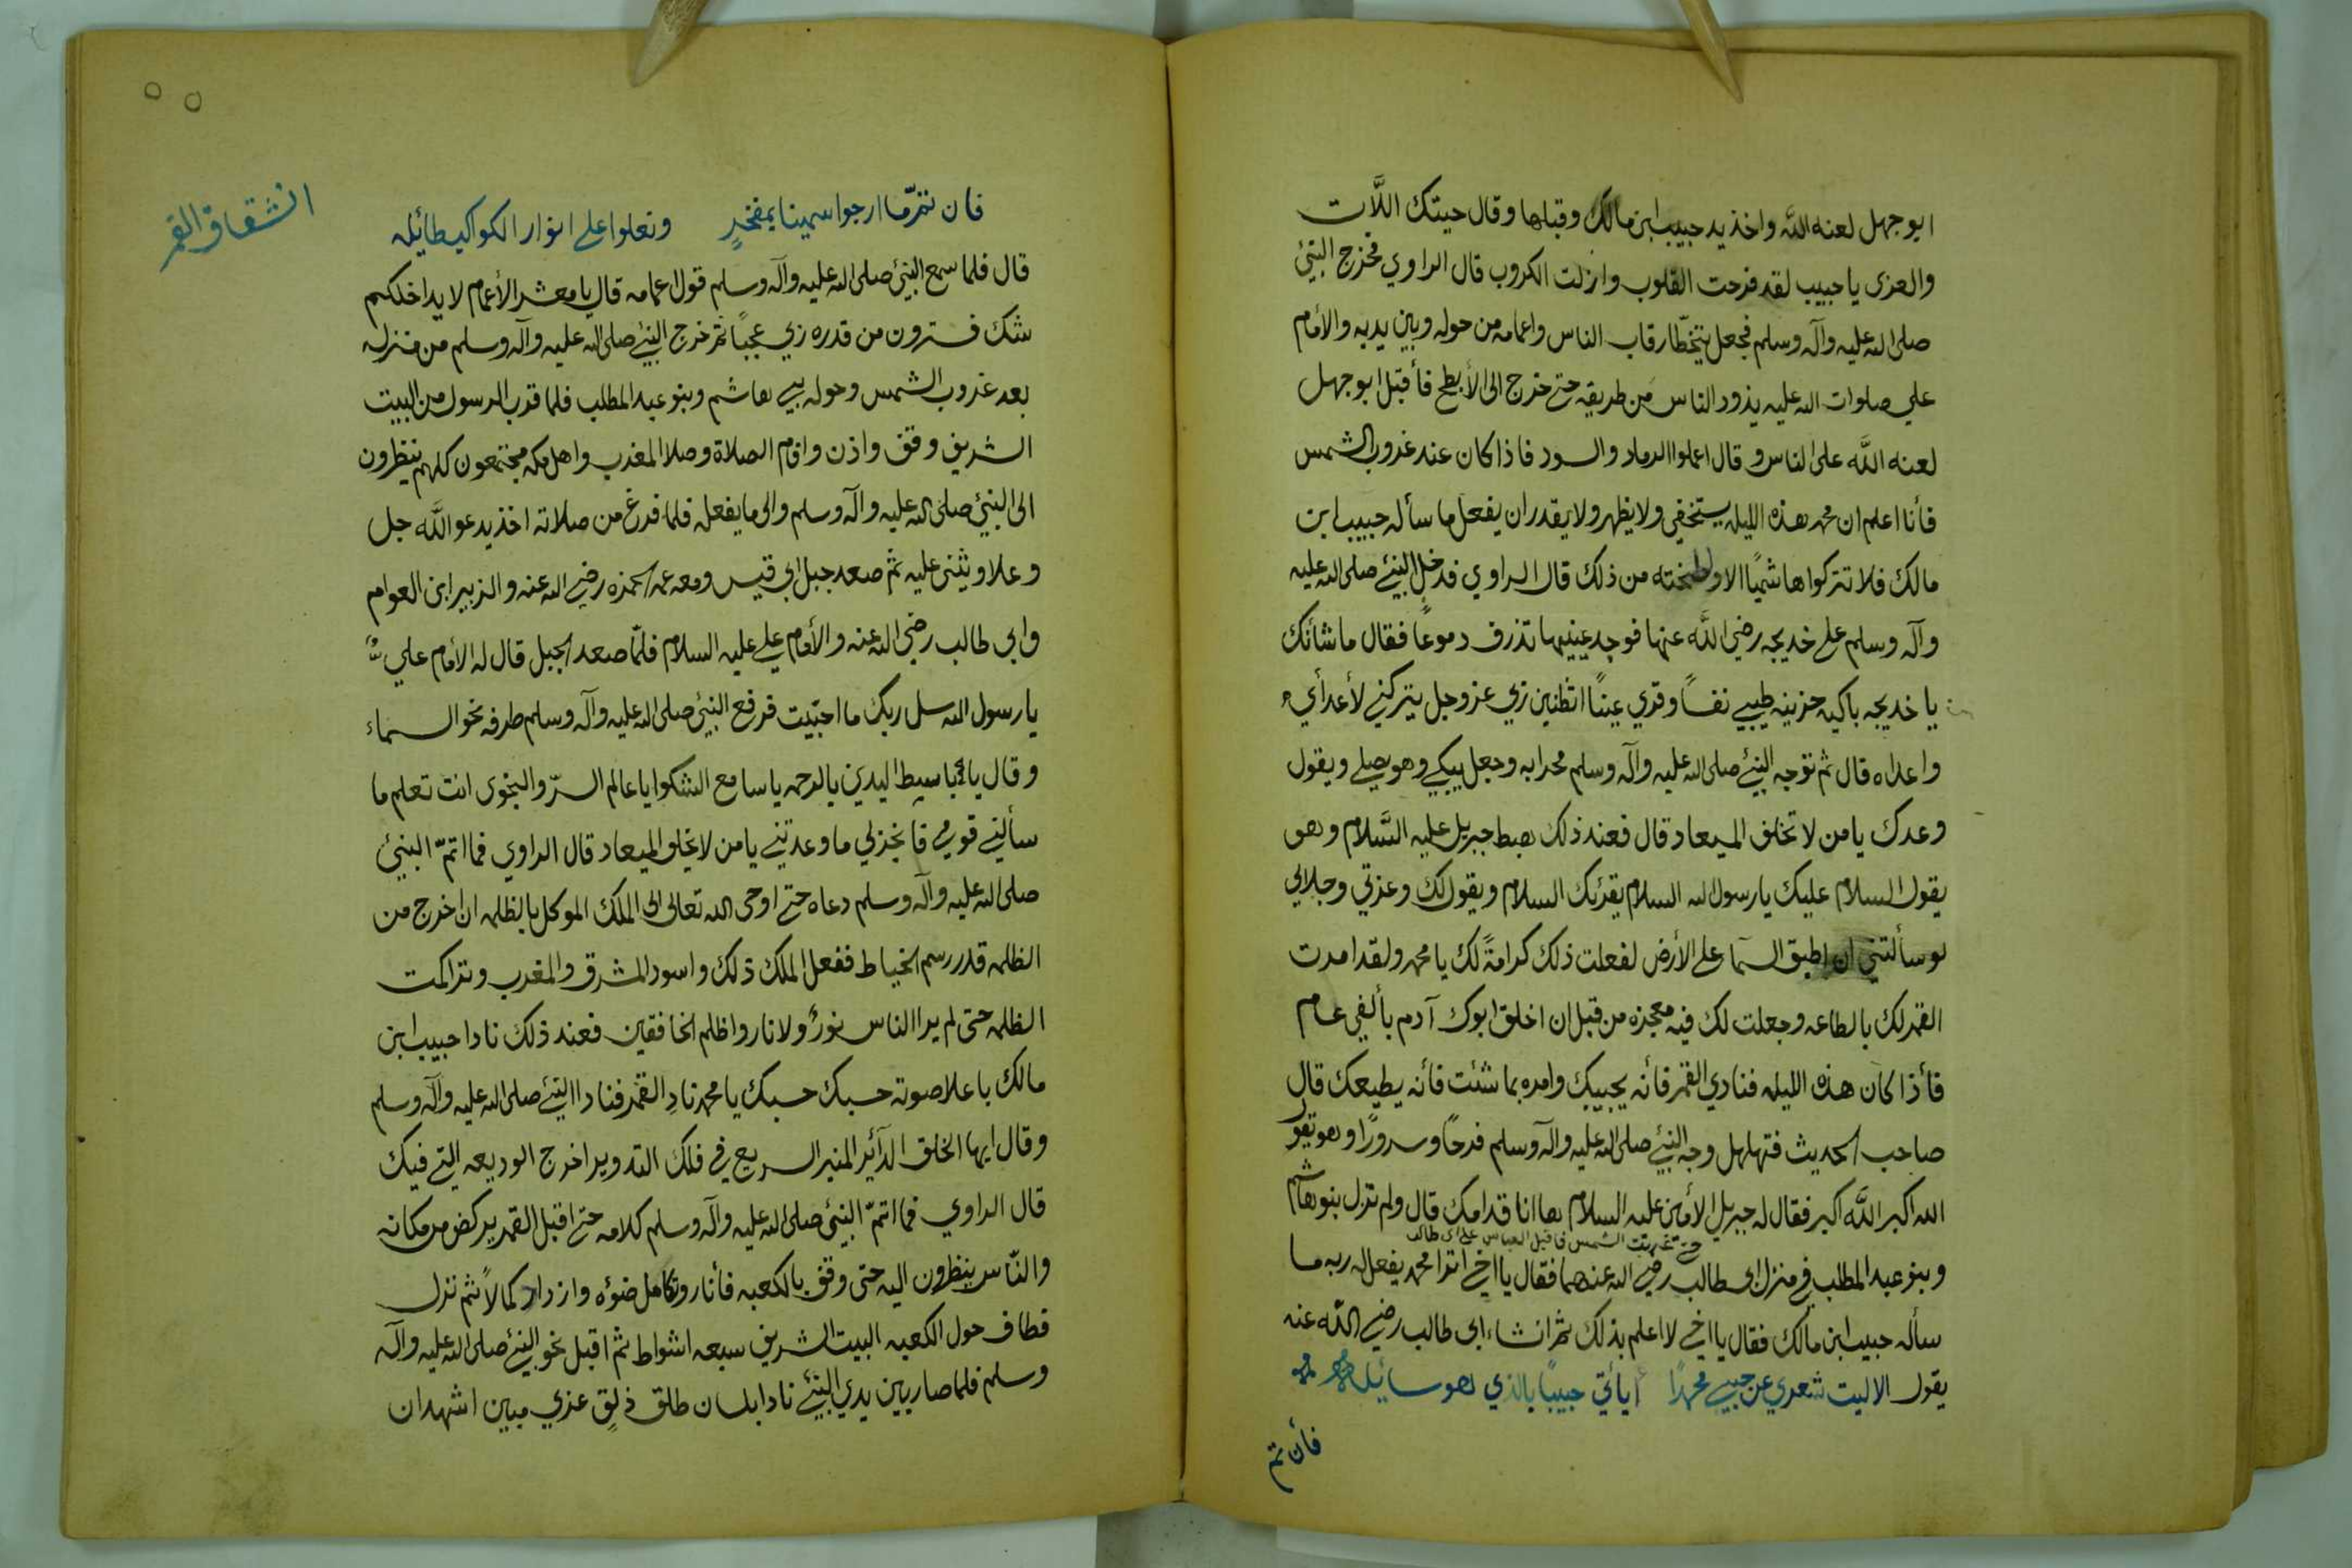 ابو جهل لعنه الله واخذ يد حبيب ابن مالك وقبلها وقال حيتك اللات
والعزى يا حبيب لقد فرحت القلوب وازلت الكروب قال الراوي فخرج النبيُ
صلى الله عليه وآله وسلم فجعل يتخطّا رقاب الناس واعمامه من حوله وبين يديه والأمام
علي صلوات الله عليه يذود الناس من طريقه حتى خرج الى الأبطح فأقبل ابو جهل
لعنه الله على الناس وقال اعملوا الرماد والسود فاذا كان عند غروب الشمس
فأنا اعلم ان محمد هذه الليله يستخفي ولا يظهر ولا يقدر ان يفعل ما سأله حبيب ابن
مالك فلا تتركوا هاشميًا الا ولطخته من ذلك قال الراوي فدخل النبيُ صلى الله عليه
وآله وسلم على خديجه رضي الله عنها فوجد عينيها تذرف دموعًا فقال ما شائنك
يا خديجه باكيه حزينه طيبي نفسًا وقري عينًا اتظنين ربي عز وجل يتركني لأعدأيِ
واعداه قال ثم توجه النبيُ صلى الله عليه وآله وسلم محرابه وجعل يبكي وهو يصلي ويقول
وعدك يا من لا تخلف الميعاد قال فعند ذلك هبط جبريل عليه السَّلام وهو
يقول السلام عليك يا رسول الله السلام يقرئك السلام ويقول لك وعزتي وجلالي
لو سألتني ان اطبق السما على الأرض لفعلت ذلك كرامةً لك يا محمد ولقد امرت
القمر لك بالطاعه وجعلت لك فيه معجزه من قبل ان اخلق ابوك آدم بألفي عام
فأذا كان هذه الليله فنادي القمر فأنه يجيبك وامره بما شئت فأنه يطيعك قال
صاحب الحديث فتهلهل وجه النبيُ صلى الله عليه وآله وسلم فرحًا وسرورًا وهو يقول
الله اكبر الله اكبر فقال له جبريل الأمين عليه السلام ها انا قدامك قال ولم تزل بنو هاشم
حتى غربت الشمس فأقبل العباس على ابي طالب
وبنو عبد المطلب في منزل ابي طالب رضي الله عنهما فقال يا اخي اترا محمد يفعل له ربه ما
سأله حبيب ابن مالك فقال يا اخي لا اعلم بذلك ثم انشاء ابي طالب رضي الله عنه
يقول الا ليت شعري عن حبيبي محمدًا أيأتي حبيبًا بالذي هو سائيله
فأن تم
انشقاق القمر
فان تم ما ارجوا سمينا بمفخرٍ وتعلوا على انوار الكواكب طائيله
قال فلما سمع النبيُ صلى الله عليه وآله وسلم قول اعمامه قال يا معشر الأعمام لا يداخلكم
شك فسترون من قدره ربي عجبًا ثم خرج النبيُ صلى الله عليه وآله وسلم من منزله
بعد غروب الشمس وحوله بني هاشم وبنو عبد المطلب فلما قرب الرسول من البيت
الشريف وقف واذن واقام الصلاة وصلا المغرب واهل مكه مجتمعون كلهم ينظرون
الى النبيُ صلى الله عليه وآله وسلم والى ما يفعله فلما فرغ من صلاته اخذ يدعو الله جل
وعلا ويثني عليه ثم صعد جبل ابي قبيس ومعه عمه الحمزه رضي الله عنه والزبير ابن العوام
وابي طالب رضي الله عنه والأمام علي عليه السلام فلمّا صعد الجبل قال له الأمام علي
يا رسول الله سل ربك ما احببت فرفع النبيُ صلى الله عليه وآله وسلم طرفه نحو السماء
وقال يا يا باسيط اليدين بالرحمه يا سامع الشكوا يا عالم السرّ والنجوى انت تعلم ما
سألني قومي فانجزلي ما وعدتني يا من لا يخلف الميعاد قال الراوي فما اتمّ النبيُ
صلى الله عليه وآله وسلم دعاه حتى اوحى الله تعالى الى الملك الموكل بالظلمه ان اخرج من
الظلمه قدر رسم الخياط ففعل الملك ذلك واسود المشرق والمغرب وتراكمت
الظلمه حتى لم يرا الناس نورٌ ولا نار واظلم الخافقين فعند ذلك نادا حبيب ابن
مالك باعلا صوته حسبك حسبك يا محمد نادِ القمر فنادا النبيُ صلى الله عليه وآله وسلم
وقال ايها الخلق الدآئر المنير السريع في فلك التدوير اخرج الوديعه التي فيك
قال الراوي فما اتمّ النبيُ صلى الله عليه وآله وسلم كلامه حتى اقبل القمر يركض من مكانه
والنّاس ينظرون اليه حتى وقف بالكعبه فأنار وتكامل ضوئه وازداد كمالاً ثم نزل
فطاف حول الكعبه البيت الشريف سبعه اشواط ثم اقبل نحو النبيُ صلى الله عليه وآله
وسلم فلما صار بين يدي النبيُ نادا بلسان طلق ذلق عربي مبين اشهد ان